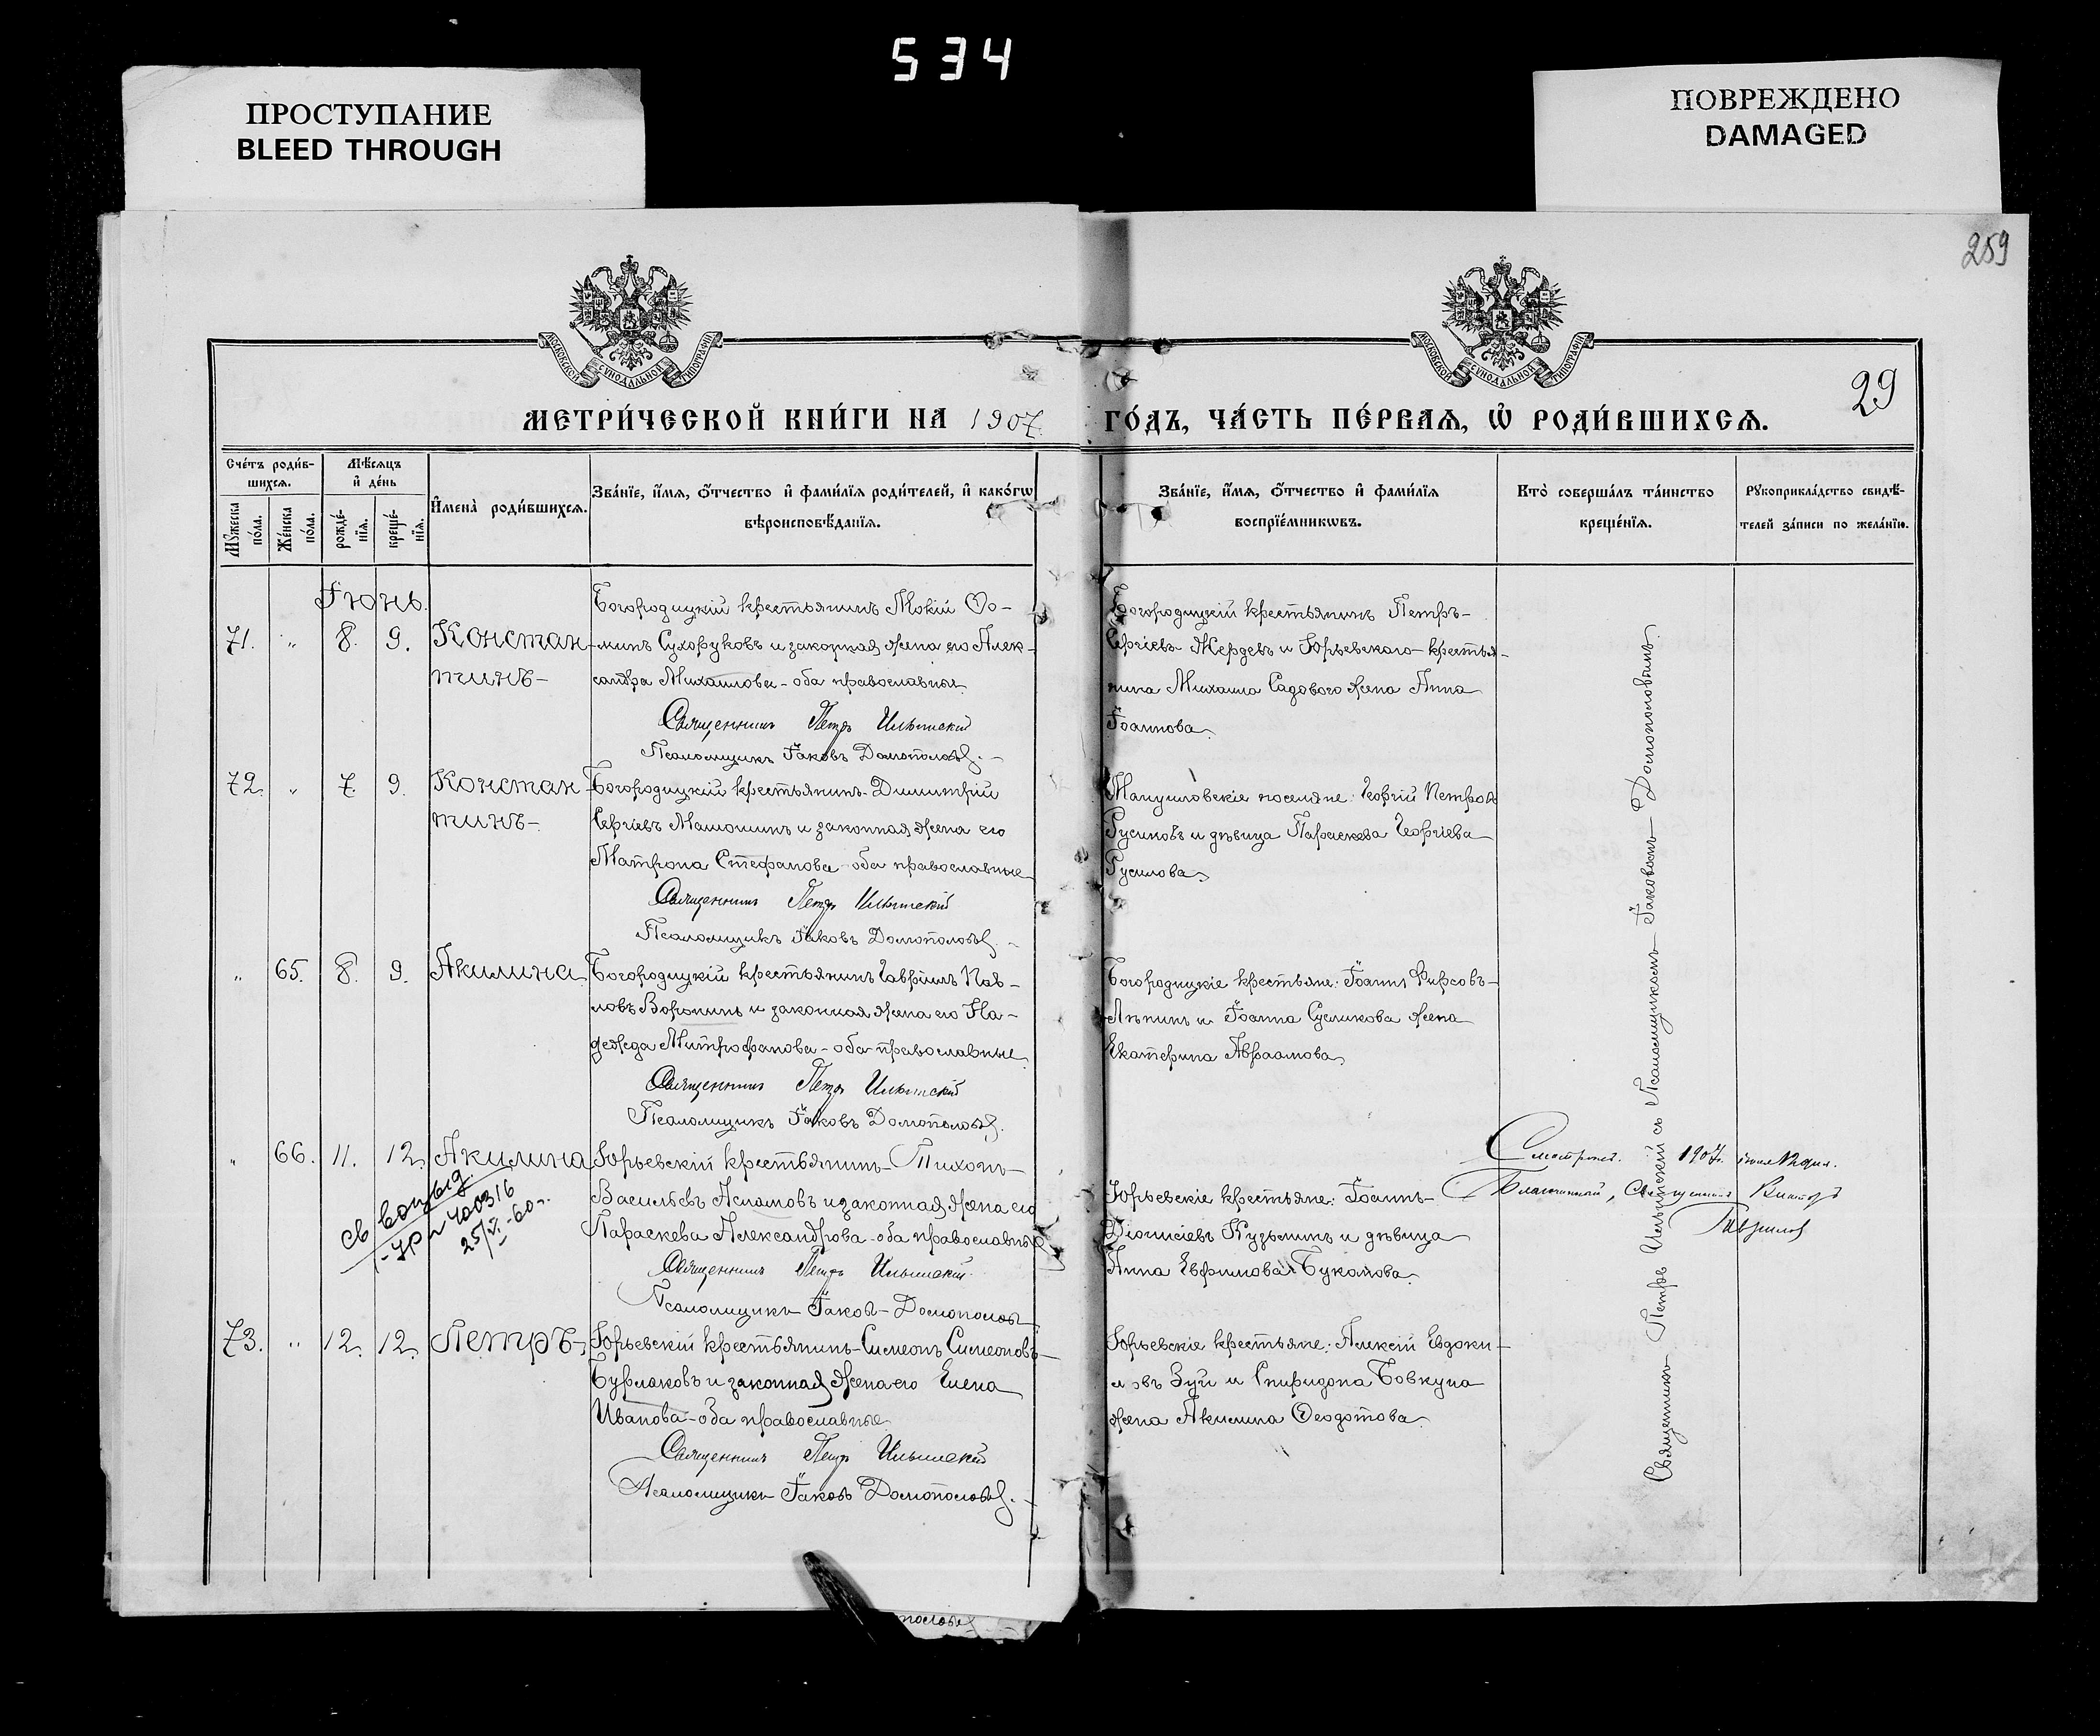 534
ПРОСТУПАНИЕ
BLEED THROUGH
ПОВРЕЖДЕНО
DAMAGED
259
МОСКОВСКОЙ СѴНОДАЛЬНОЙ ТИПОГРАФІИ
МОСКОВСКОЙ СѴНОДАЛЬНОЙ ТИПОГРАФІИ
29
МЕТРИ́ЧЕСКОЙ КНИ́ГИ НА 1907 ГО́ДЪ, ЧА́СТЬ ПЕ́РВАѦ, Ѡ҆ РОДИ́ВШИХСѦ.
Сче́тъ роди́в-
шихсѧ.
Мѣ́сѧцъ
и҆ де́нь
Мꙋ́жеска
по́ла.
Же́нска
по́ла.
рожде́-
нїѧ.
креще́-
нїѧ.
И҆мена̀ роди́вшихсѧ.
Зва́нїе, и҆́мѧ, ѻ҆́тчество и҆ фами́лїѧ роди́телей, и҆ како́гѡ
вѣроисповѣ́данїѧ.
Зва́нїе, и҆́мѧ, ѻ҆́тчество и҆ фами́лїѧ
воспрїе́мникѡвъ.
Кто̀ соверша́лъ та́инство
креще́нїѧ.
Рꙋкоприкла́дство свидѣ́-
телей за́писи по жела́нїю.
Іюнь.
71. „ 8. 9. Констан-
тинъ-
Богородицкій крестьянинъ Мокій Ѳо-
минъ Сухоруковъ и законная жена его Алек-
сандра Михаилова - оба православные
Священникъ Петръ Ильинскій
Псаломщикъ Іаковъ Домонополовъ.
Богородицкій крестьянинъ Петръ-
Сергіевъ Жердевъ и Юрьевскаго крестья-
нина Михаила Садового жена Анна
Іоаннова.
72. „ 7. 9. Констан-
тинъ-
Богородицкій крестьянинъ Димитрій
Сергіевъ Машошинъ и законная жена его
Матрона Стефанова - оба православные
Священникъ Петръ Ильинскій
Псаломщикъ Іаковъ
Мануиловскіе поселяне: Георгій Петровъ
Русиновъ и дѣвица Параскева Георгіева
Русинова.
„ 65. 8. 9. Акилина
Богородицкій крестьянинъ Гавріилъ Пав-
ловъ Воронинъ и законная жена его На-
дежда Митрофанова - оба православные
Священникъ Петръ Ильинскій
Псаломщикъ Іаковъ
Богородицкіе крестьяне: Іоаннъ Фирсовъ-
Іоанна Сусликова жена
Екатерина Авраамова
„ 66. 11. 12. Акилина
св выд
400316
25/VI-60г.
Юрьевскій крестьянинъ-Тихонъ-
Васильевъ Асламовъ и законная жена его
Параскева Александрова - оба православные
Священникъ Петръ Ильинскій
Псаломщикъ Іаковъ
Юрьевскіе крестьяне: Іоаннъ-
Діонисіевъ Кузьминъ и дѣвица
Анна Евфимова Букалова
73. „ 12. 12. Петръ-
Юрьевскій крестьянинъ-Симеонъ Симеоновъ
Бурлаковъ и законная жена его Елена
Иванова-оба православные
Священникъ Петръ Ильинскій
Псаломщикъ Іаковъ
Юрьевскіе крестьяне: Алексій Евдоки-
мовъ Зуй и Спиридона Бовкуна
жена Акилина Ѳеодотова
Священникъ Петръ Ильинскій съ Псаломщикомъ Іаковомъ
Смотрѣлъ. 1907г.
Благочинный, Священникъ Викторъ
Гаврилов